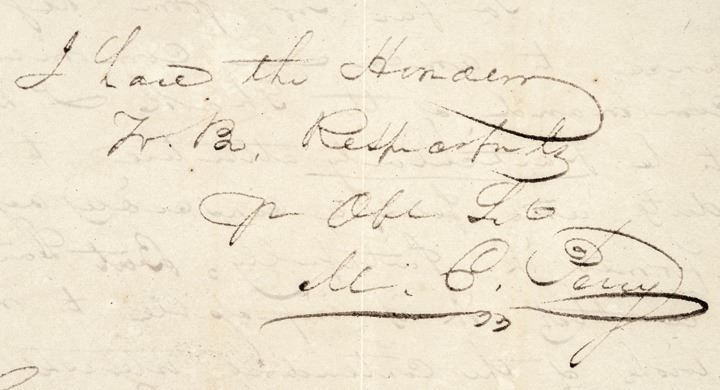 I have the Honour
To Be, Respectfuly
Yr Obt St
M. C. Perry